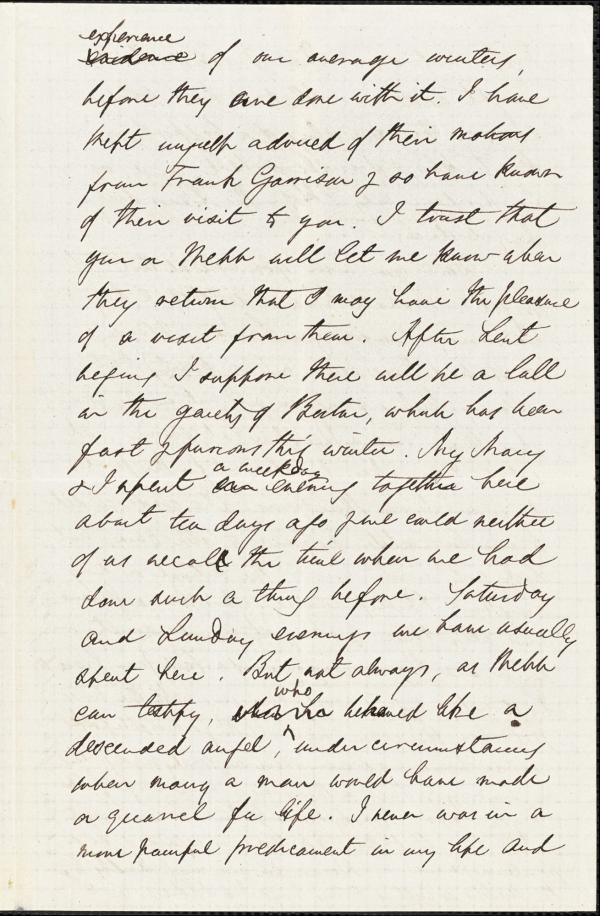 experience
evidence of our average winters,
before they are done with it. I have
kept myself advised of their motions
from Frank Garrison & so have known
of their visit to you. I trust that
you or Webb will let me know when
they return that I may have the pleasure
of a visit from them. After Lent
begins I suppose there will be a lull
in the gaiety of Boston, which has been
fast & furious this winter. My Mary
a weekday
& I spent evening together here
about ten days ago & we could neither
of us recall the time when we had
done such a thing before. Saturday
and Sunday evenings we have usually
spent here. But not always, as Webb
who
can testify, behaved like a
descended angel, under circumstances
when many a man would have made
a quarrel for life. I never was in a
more painful predicament in my life and